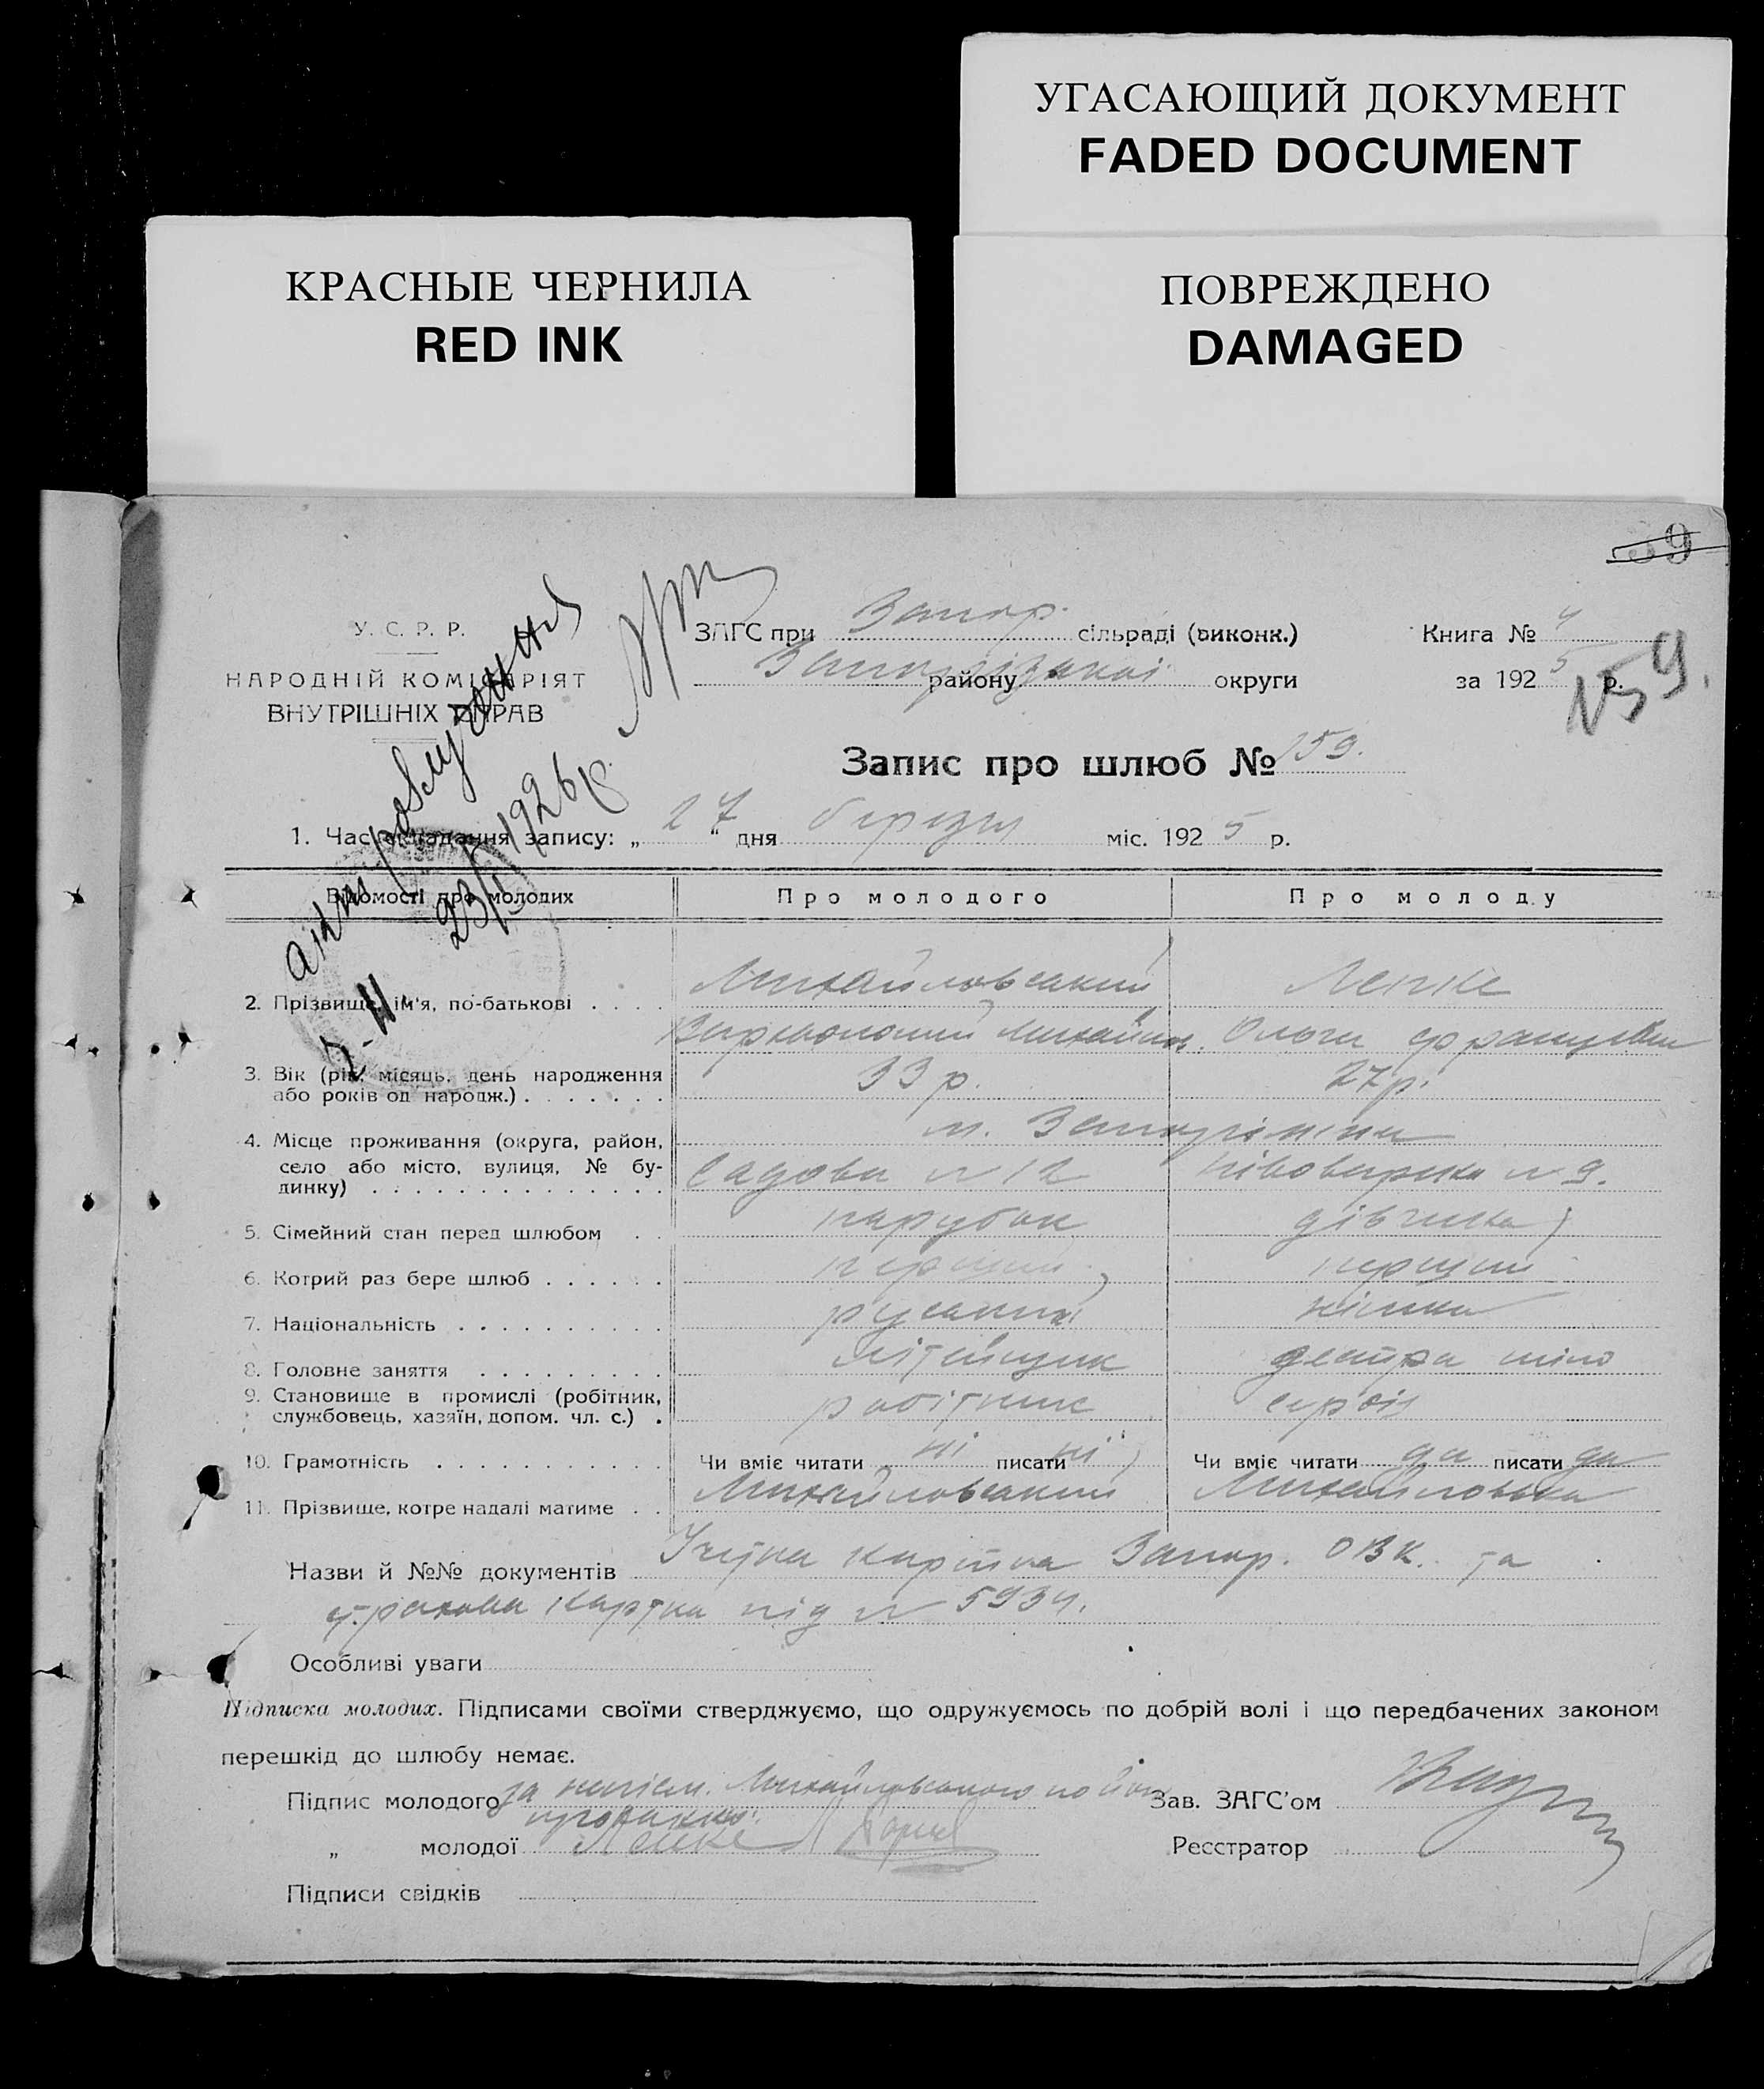 УГАСАЮЩИЙ ДОКУМЕНТ
FADED DOCUMENT
КРАСНЫЕ ЧЕРНИЛА
RED INK
ПОВРЕЖДЕНО
DAMAGED
39
У. С. Р. Р.
НАРОДНІЙ КОМІСАРІЯТ
ВНУТРІШНІХ СПРАВ
ЗАГС при Запор. сільраді (виконк.)
району Запорізької округи
Книга № 4
за 1925 р.
159.
Запис про шлюб № 159.
1. Час складання запису: „27“ дня березня міс. 1925 р.
1926 р.
Відомості про молодих
Про молодого
Про молоду
2. Прізвище, ім'я, по-батькові
Михайловський
Ленке
Варфоломій Михайлов.
Ольга Францівна
3. Вік (рік, місяць, день народження
або років од народж.)
33 р.
27 р.
4. Місце проживання (округа, район,
село або місто, вулиця, № бу-
динку)
м. Запоріжжя
Садова № 12
№ 9.
5. Сімейний стан перед шлюбом
парубок
дівчина
6. Котрий раз бере шлюб
перший
перший
7. Національність
руський
німка
8. Головне заняття
літейщик
9. Становище в промислі (робітник,
службовець, хазяїн, допом. чл. с.)
робітник
10. Грамотність
Чи вміє читати ні писати ні
Чи вміє читати да писати да
11. Прізвище, котре надалі матиме
Михайловський
Михайловська
Назви й №№ документів
картка Запор. ОВК. та
страхова картка під № 5934.
Особливі уваги
Підписка молодих. Підписами своїми стверджуємо, що одружуємось по добрій волі і що передбачених законом
перешкід до шлюбу немає.
Підпис молодого за Михайловського по його
проханню
„ молодої Ленке
Зав. ЗАГС'ом
Реєстратор
Підписи свідків